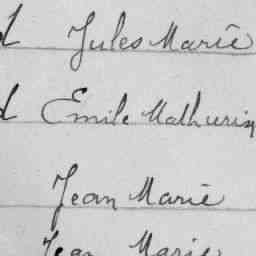 d Jules Marie
d Emile Mathurin
Jean Marie
Jean Marie